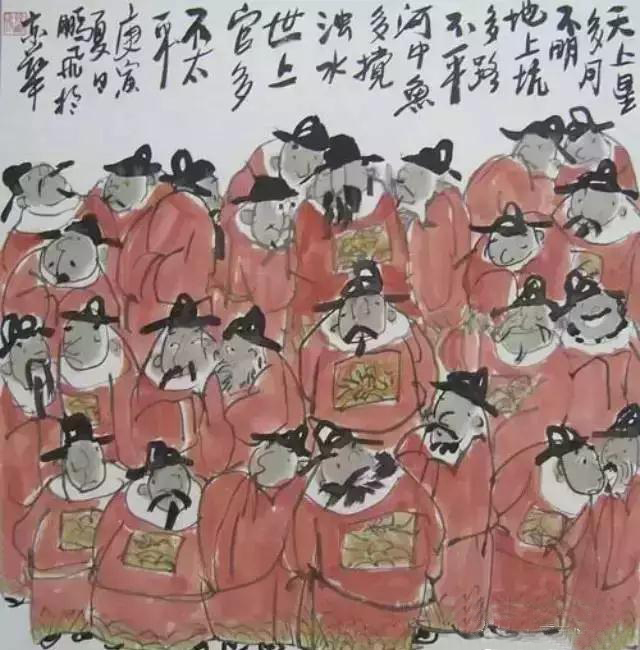 天上星
多月
不明
地上坑
多路
不平
河中魚
多搅
浊水
世上
官多
不太
平
庚寅
夏日
鹏飛於
京華